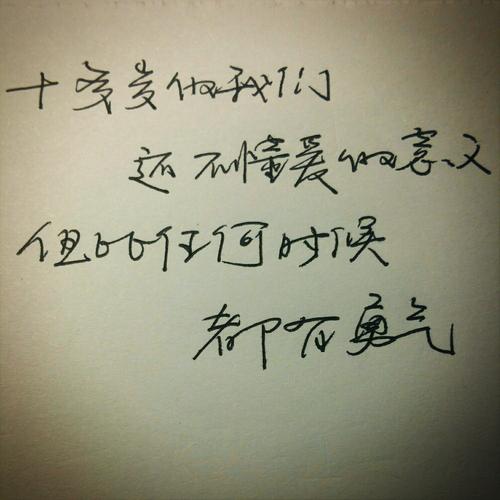 十多岁的我们
还不懂爱的意义
但比任何时候
都有勇气